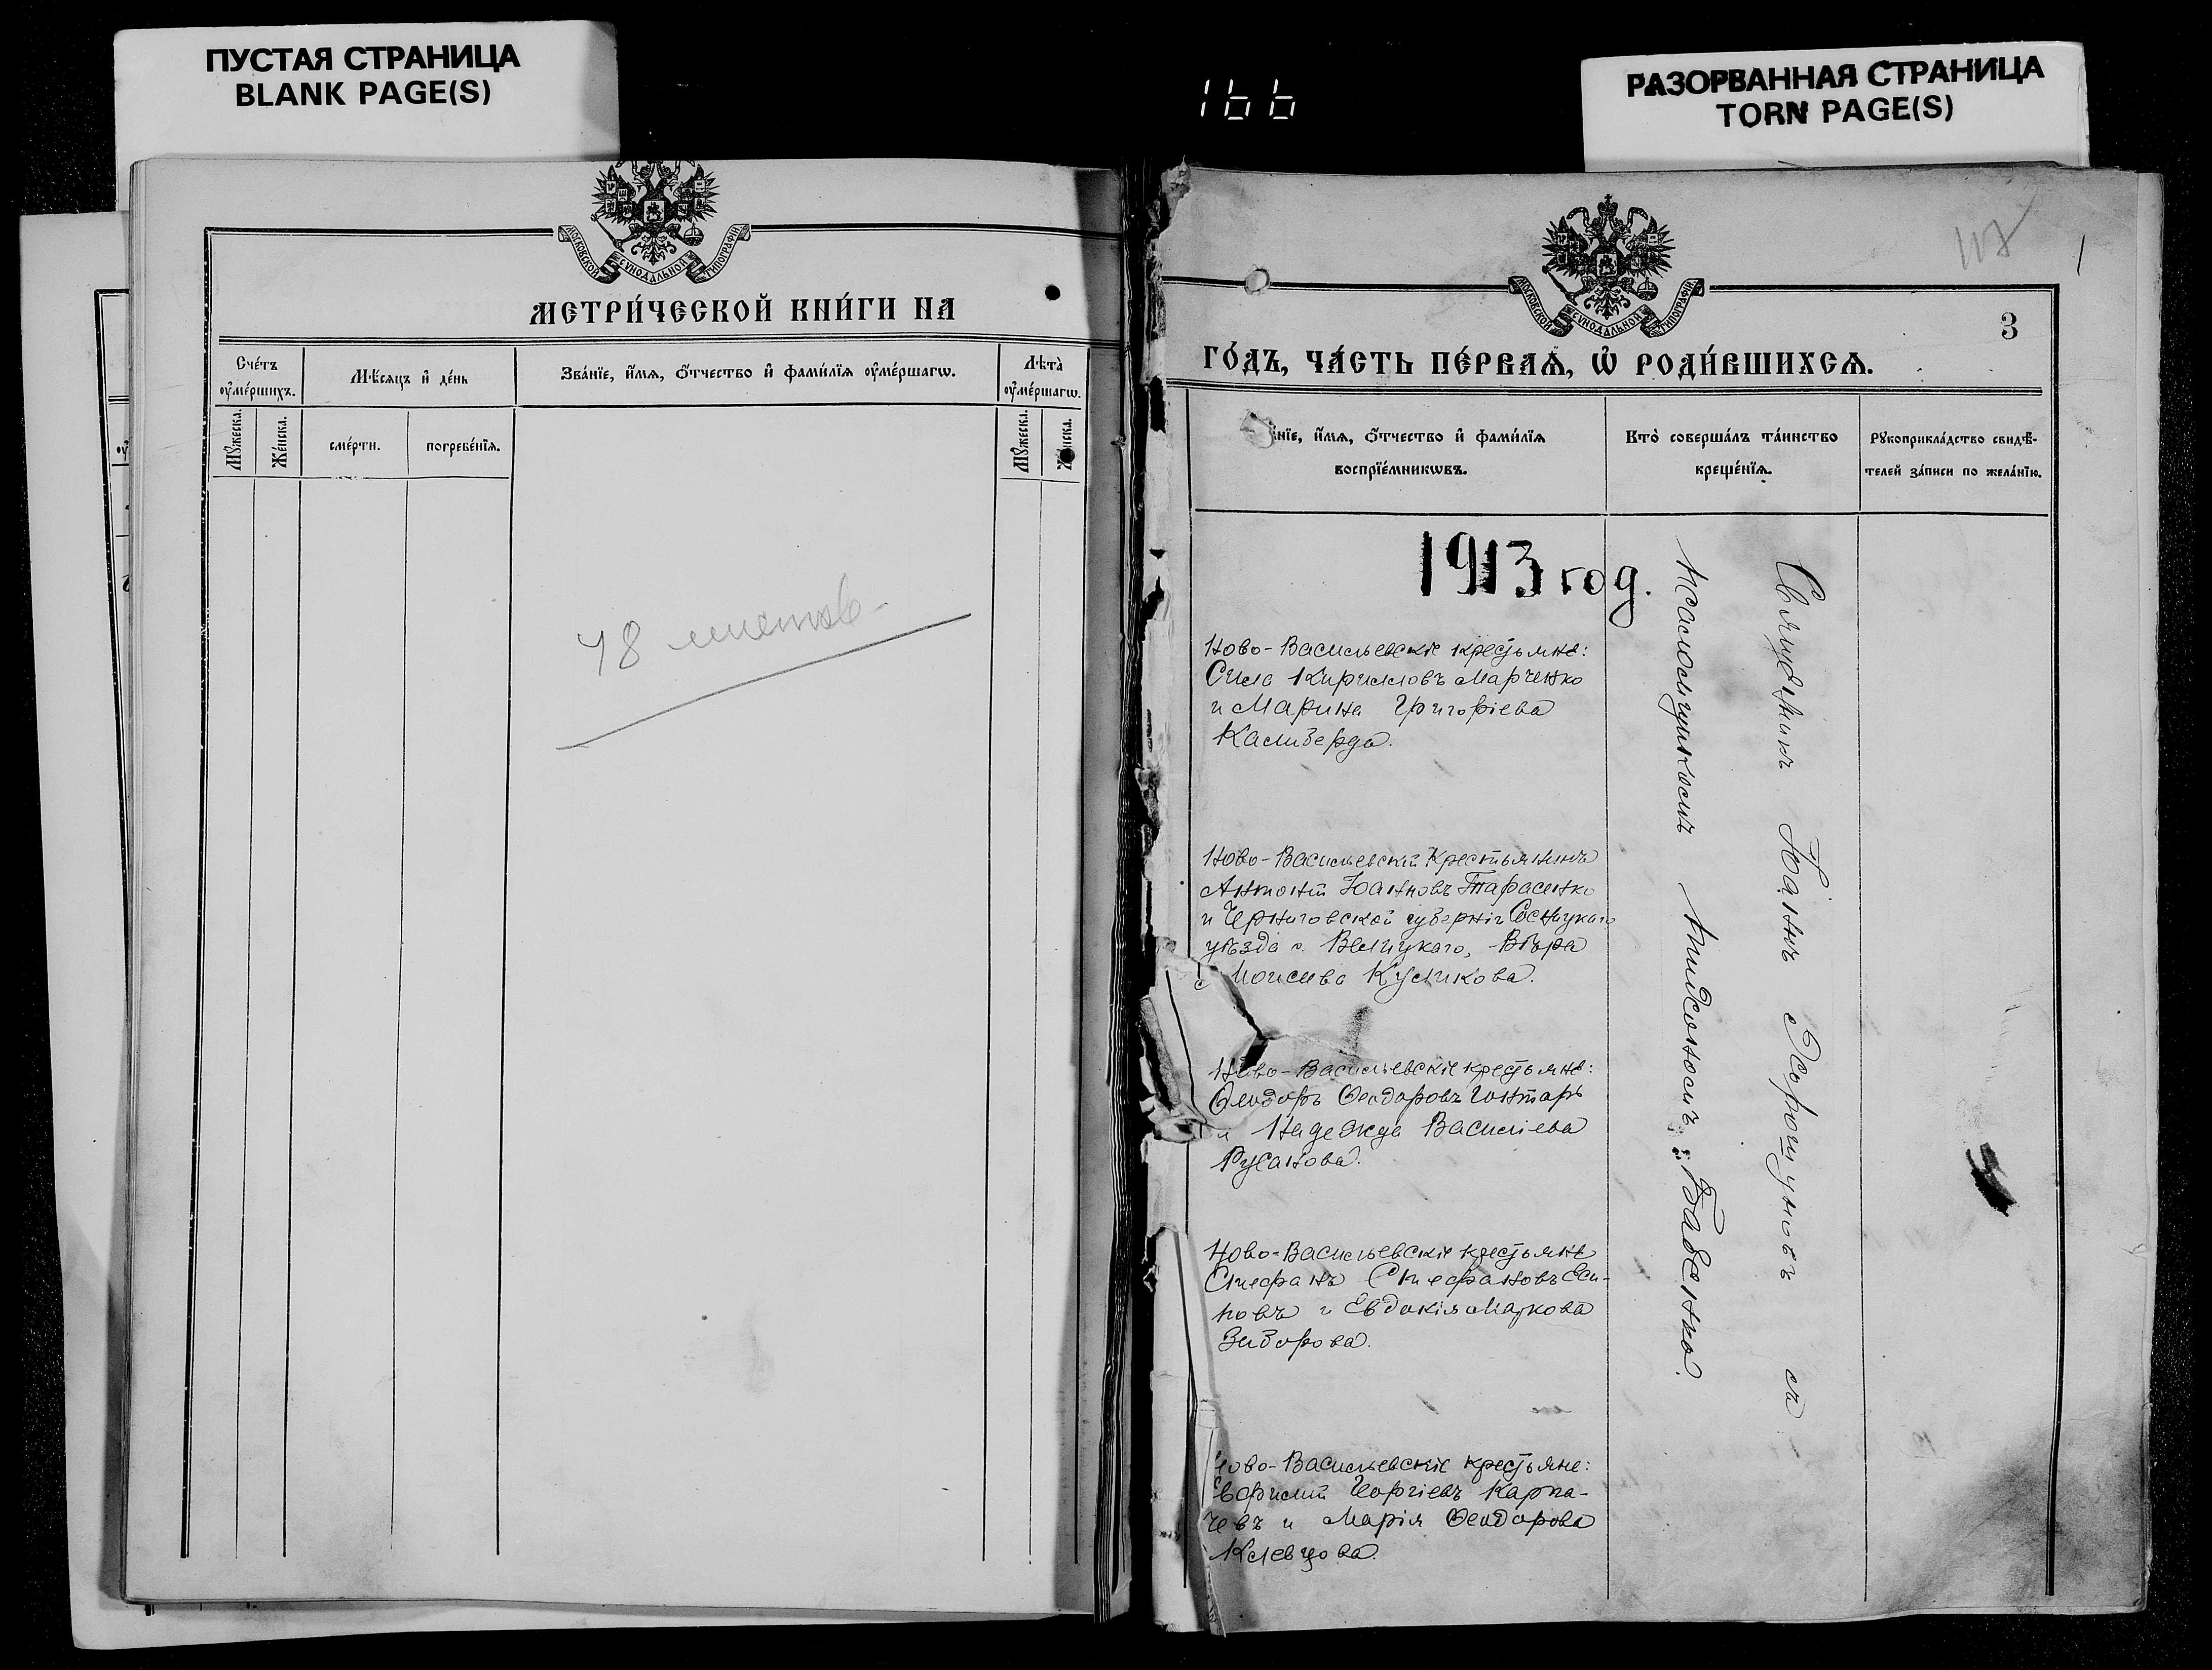 ПУСТАЯ СТРАНИЦА
BLANK PAGE(S)
166
РАЗОРВАННАЯ СТРАНИЦА
TORN PAGE(S)
МОСКОВСКОЙ СѴНОДАЛЬНОЙ ТИПОГРАФІИ
МЕТРИ́ЧЕСКОЙ КНИ́ГИ НА
Сче́тъ
ᲂу҆ме́ршихъ.
Мѣсяцъ и҆ де́нь
Зва́нїе, и҆́мѧ, ѻ҆́тчество и҆ фами́лїѧ ᲂу҆ме́ршагѡ.
Лѣта̀
ᲂу҆ме́ршагѡ.
Мꙋ́жеска.
Же́нска.
сме́рти.
погребе́нїѧ.
Мꙋ́жеска.
Же́нска.
48 листов
МОСКОВСКОЙ СѴНОДАЛЬНОЙ ТИПОГРАФІИ
117
1
3
ГО́ДЪ, ЧА́СТЬ ПЕ́РВАѦ, Ѡ҆ РОДИ́ВШИХСѦ.
а́нїе, и҆́мѧ, ѻ҆́тчество и҆ фами́лїѧ
воспрїе́мникѡвъ.
Кто̀ соверша́лъ та́инство
креще́нїѧ.
Рꙋкоприкла́дство свидѣ́-
телей за́писи по жела́нїю.
1913 год.
Ново-Васильевскіе крестьяне:
Сила Кирилловъ Марченко
и Марина Григоріева
Калиберда.
Ново-Васильевскій крестьянинъ
Антоній Іоанновъ Тарасенко
и Черниговской губерніи Сосницкаго
уѣзда с. Велицкаго, Вѣра
Моисеева Куликова.
Ново-Васильевскіе крестьяне:
Ѳеодоръ Ѳеодоровъ Гонтарь
и Надежда Василіева
Русанова.
Ново-Васильевскіе крестьяне
Стефанъ Стефановъ Еси-
повъ и Евдокія Маркова
Зидорова.
Ново-Васильевскіе крестьяне:
Георгіевъ Карпа-
чевъ и Марія Ѳеодорова
Клевцова.
Священникъ Іоаннъ съ
Псаломщикомъ Бабенко